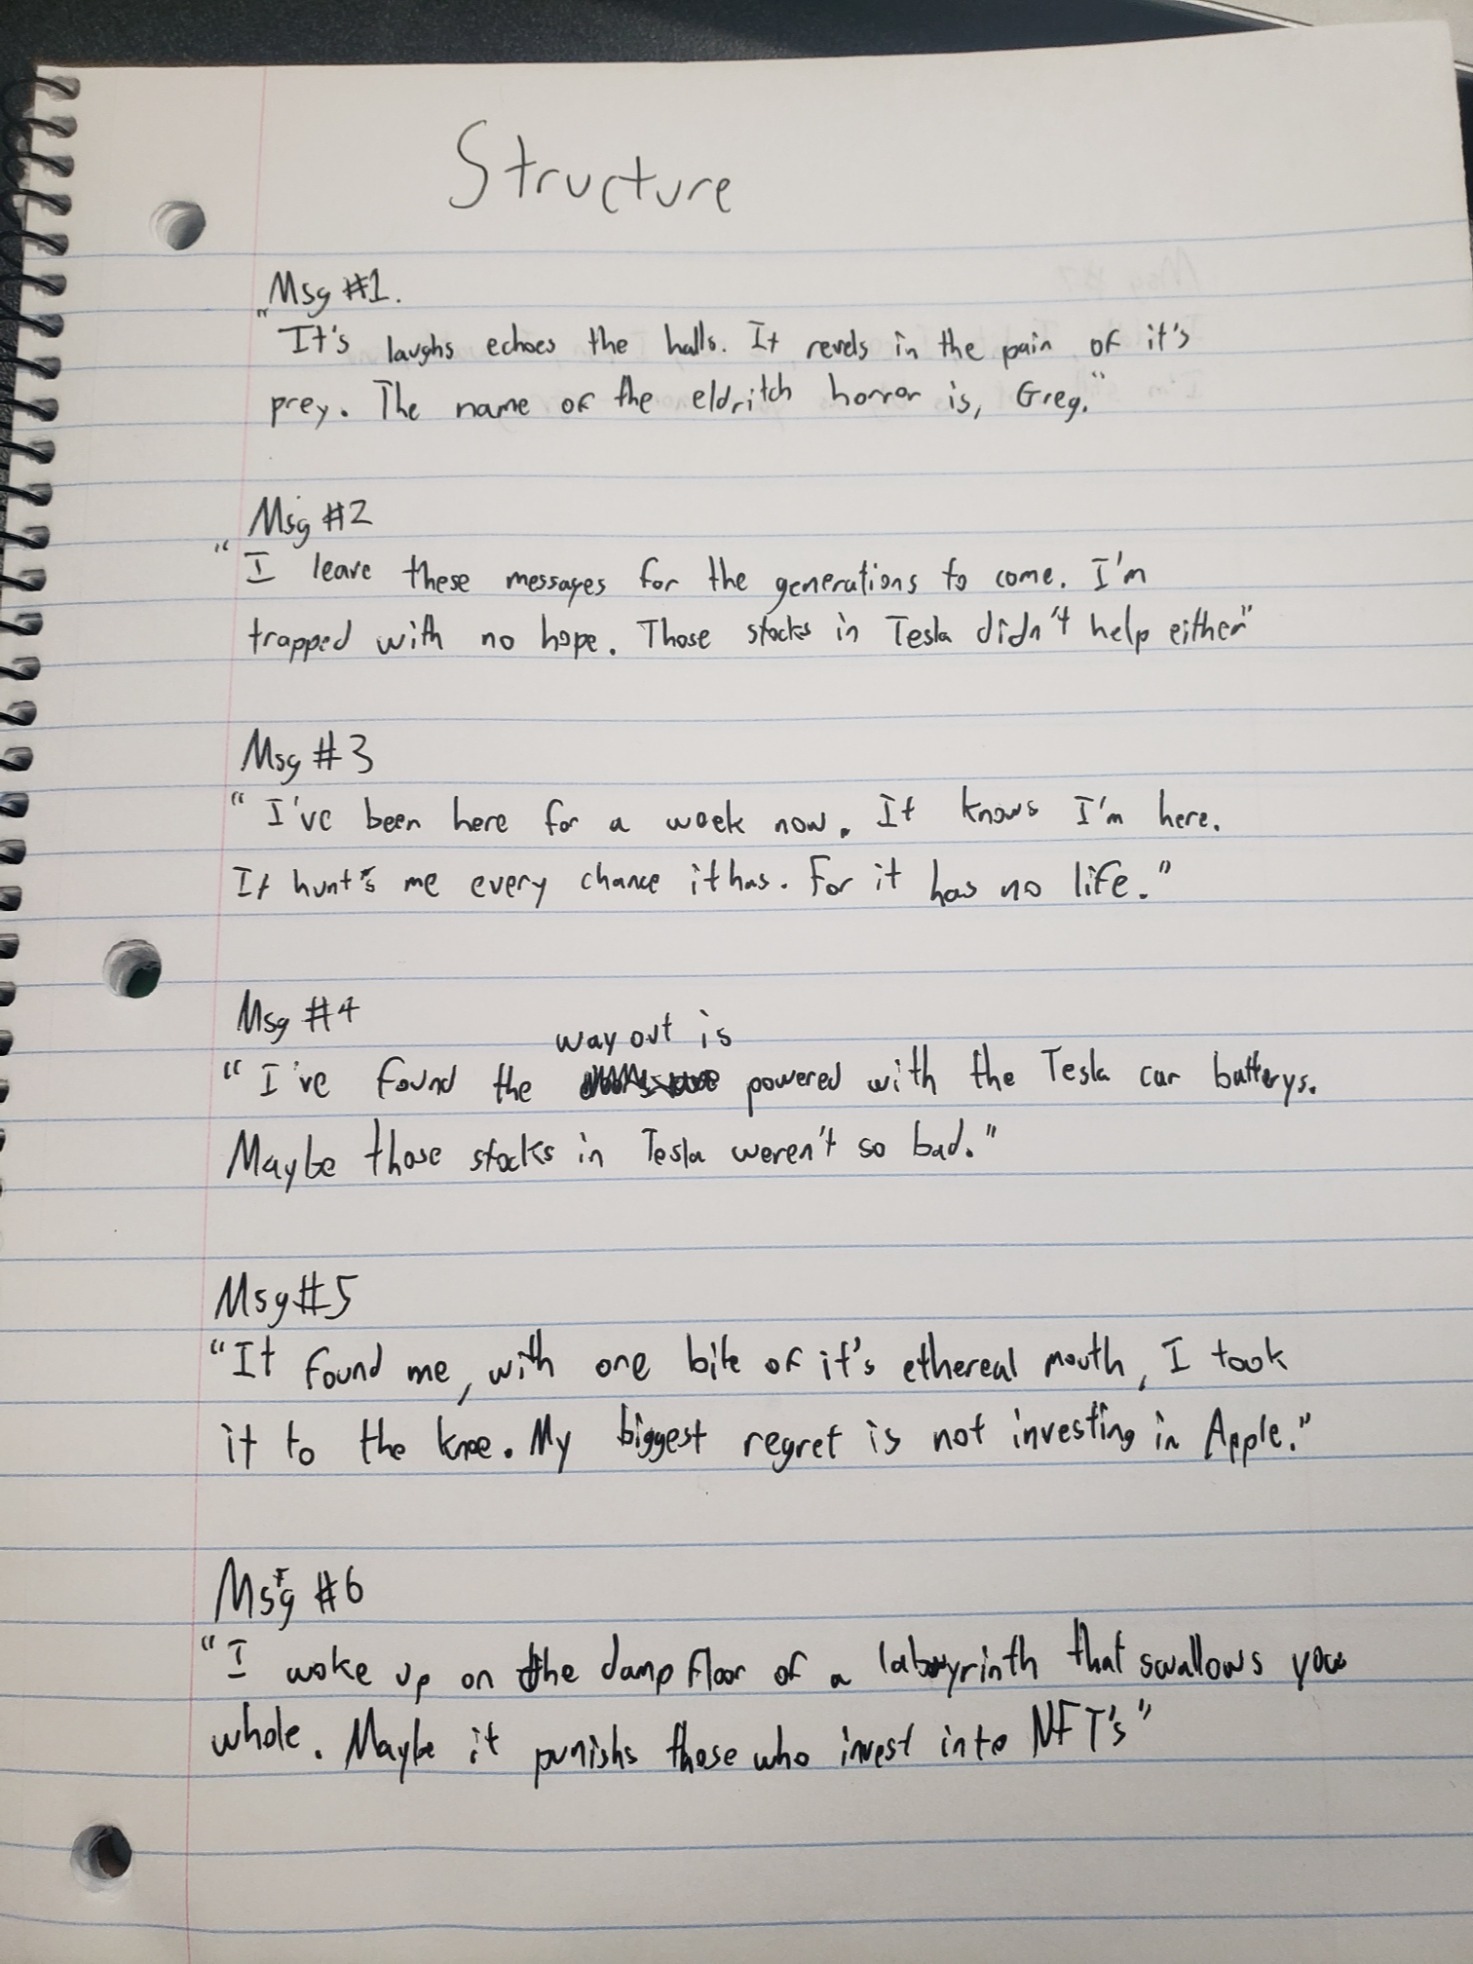 Structure
Msg #1.
"It's laughs echoes the halls. It revels in the pain of it's
prey. The name of the eldritch horror is, Greg."
Msg #2
"I leave these messages for the generations to come. I'm
trapped with no hope. Those stocks in Tesla didn't help either"
Msg #3
"I've been here for a week now. It knows I'm here.
It hunt's me every chance it has. For it has no life."
Msg #4
way out is
"I've found the powered with the Tesla car batterys.
Maybe those stocks in Tesla weren't so bad."
Msg #5
"It found me, with one bite of it's ethereal mouth, I took
it to the knee. My biggest regret is not investing in Apple."
Msg #6
"I woke up on the damp floor of a labyrinth that swallows you
whole. Maybe it punishs those who invest into NFT's"